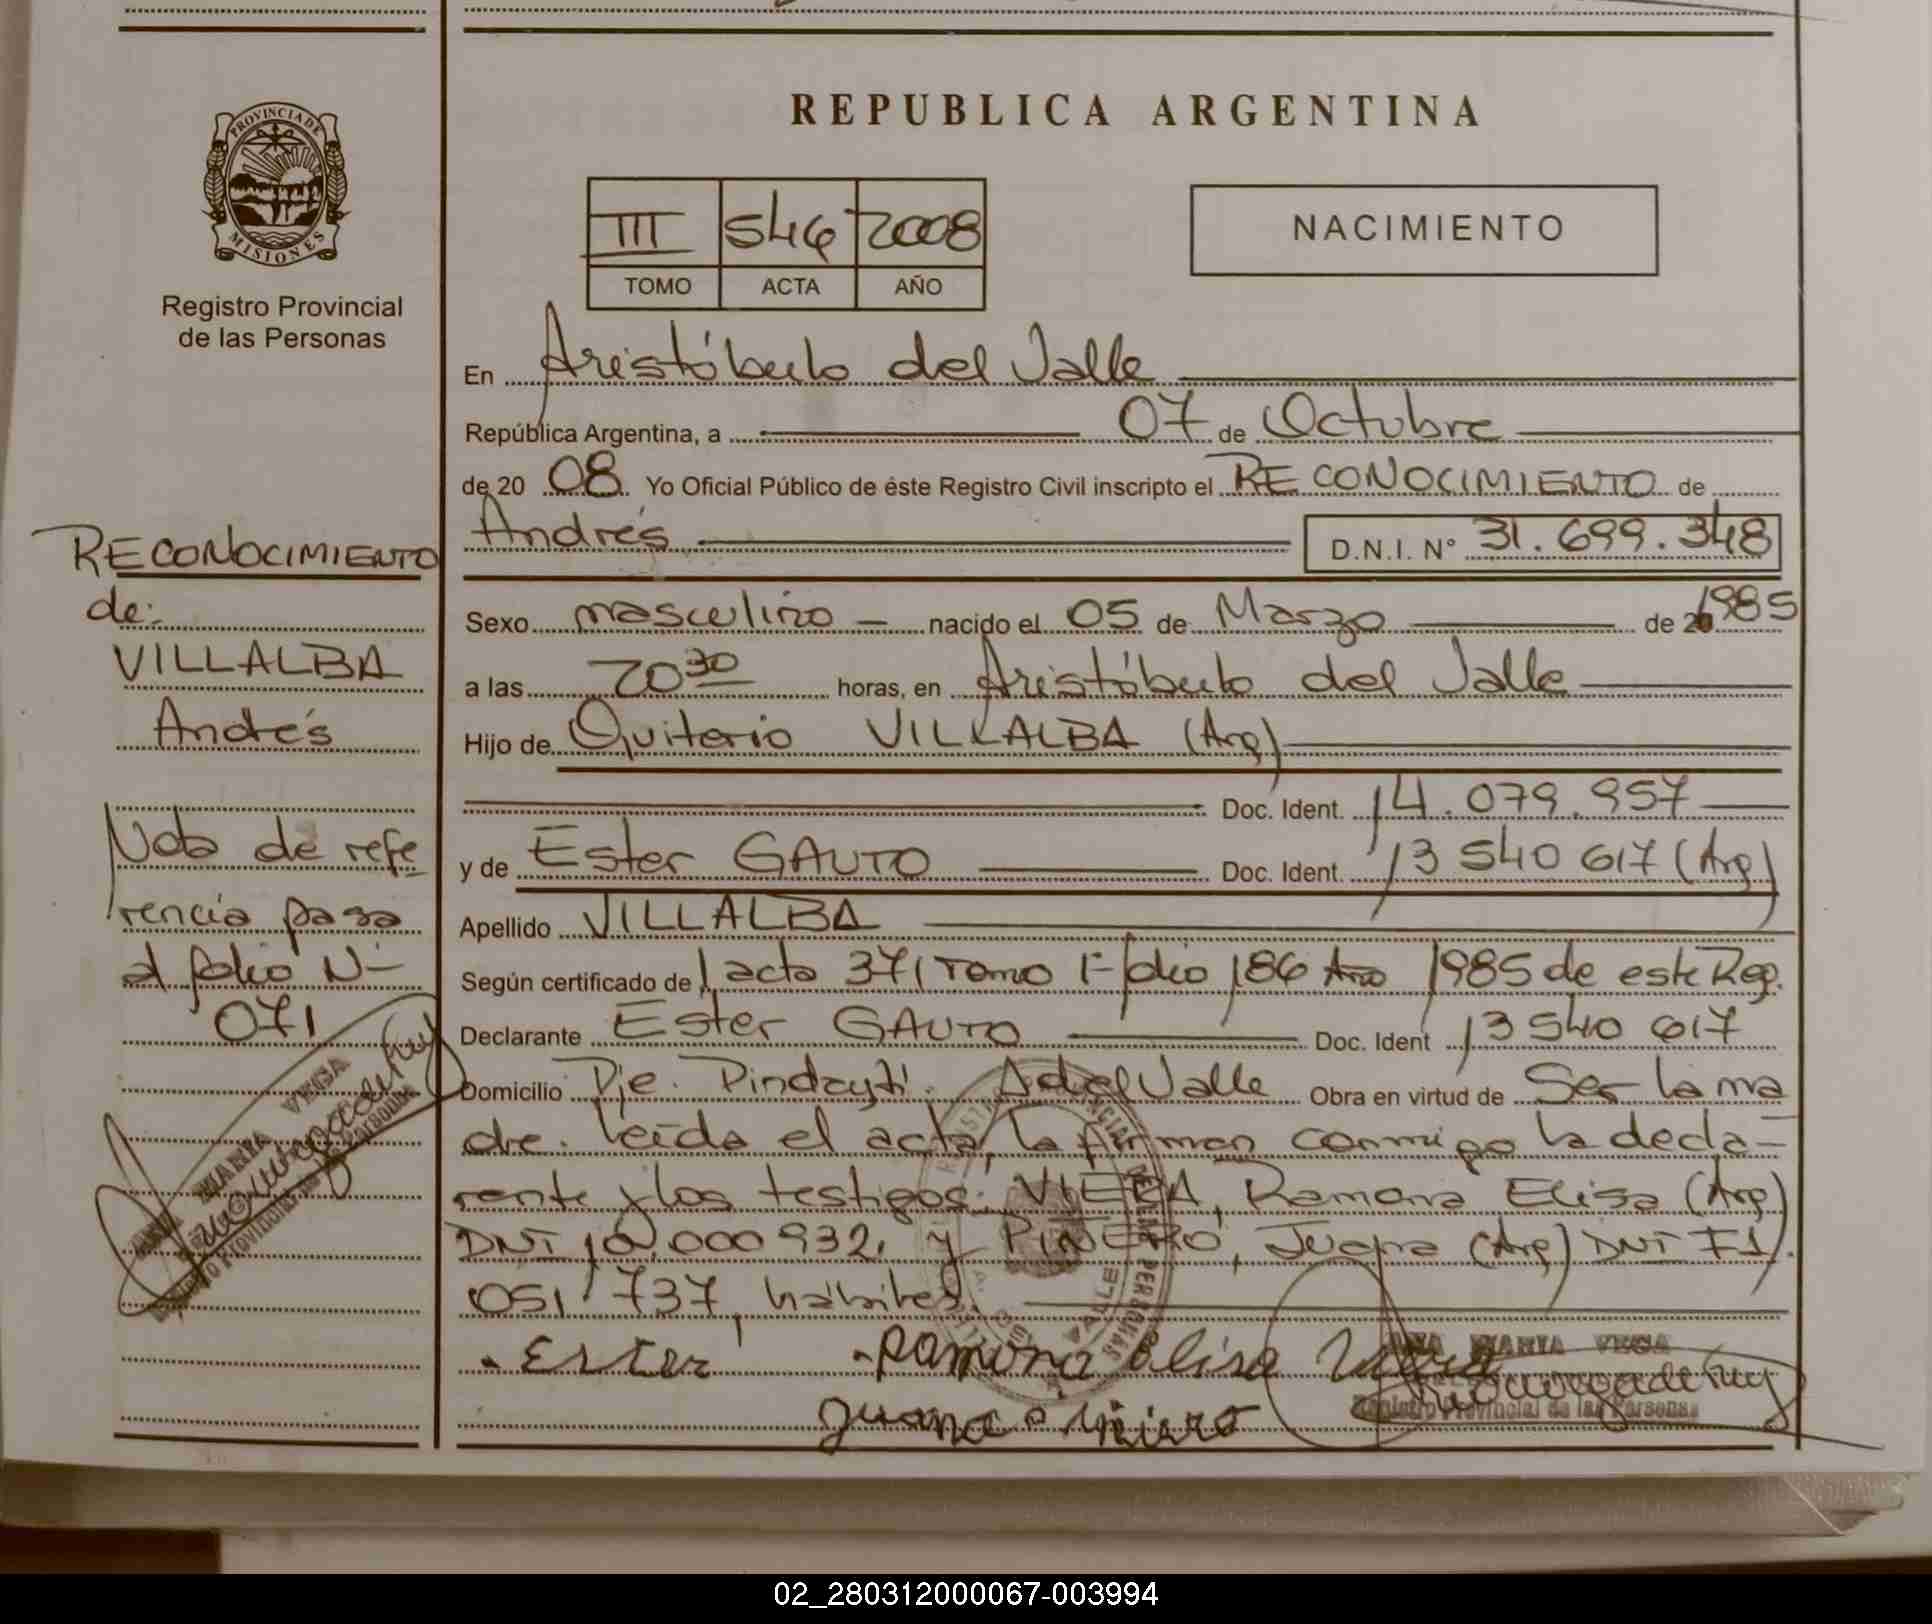 REPUBLICA ARGENTINA
PROVINCIA DE
MISIONES
Registro Provincial
de las Personas
III 546 2008
TOMO ACTA AÑO
NACIMIENTO
En Aristóbulo del Valle
República Argentina, a 07 de Octubre
de 20 08 Yo Oficial Público de éste Registro Civil inscripto el RECONOCIMIENTO de
Andrés D.N.I. N° 31.699.348
Sexo masculino nacido el 05 de Marzo de 1985
a las 20 30 horas, en Aristóbulo del Valle
Hijo de Quiterio VILLALBA (Arg)
Doc. Ident. 14.079.957
y de Ester GAUTO Doc. Ident. 13 540 617 (Arg)
Apellido VILLALBA
Según certificado de acta 371 Tomo I- folio 186 Año 1985 de este Reg.
Declarante Ester GAUTO Doc. Ident 13 540 617
Domicilio Pje. Pindayti. A del Valle Obra en virtud de Ser la ma
dre. leída el acta, la firman conmigo la decla-
rante y los testigos: VIERA, Ramona Elisa (Arg)
DNI 10.000 932, y PIÑERO, Juana (Arg) DNI F1
051 737, hábiles.
Ester Ramona elisa Viera
Juana
ANA MARIA VEGA
Registro Provincial de las Personas
RECONOCIMIENTO
de:
VILLALBA
Andrés
Nota de refe
rencia pasa
al folio N-
071
ANA MARIA VEGA
Registro Provincial de las Personas
02_280312000067-003994